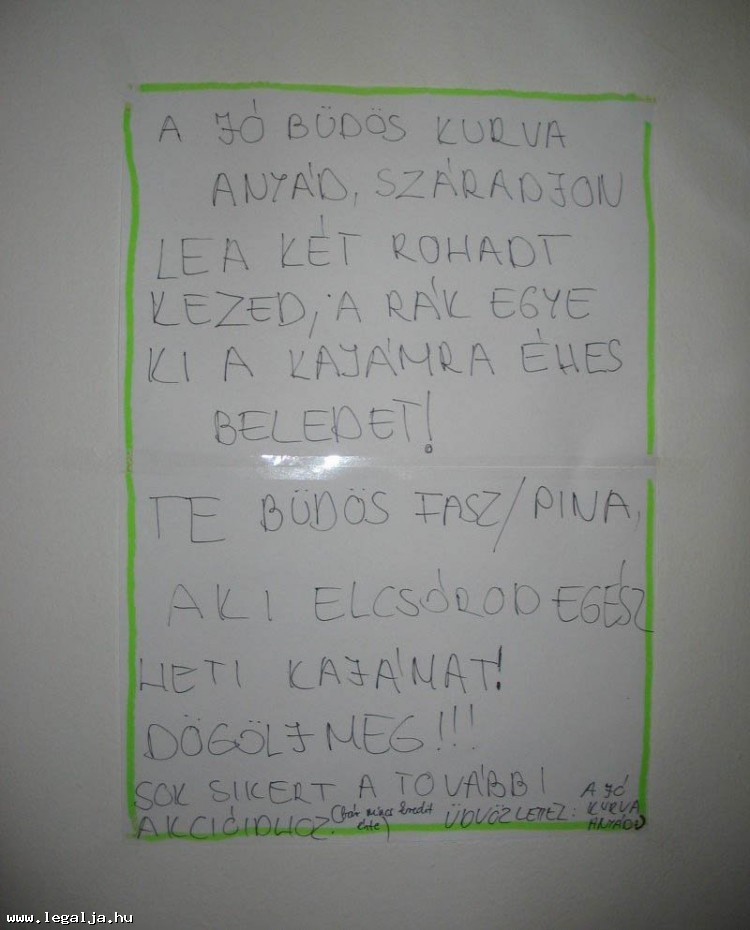 A JÓ BÜDÖS KURVA
ANYÁD, SZÁRADJON
LE A KÉT ROHADT
KEZED, A RÁK EGYE
KI A KAJÁMRA ÉHES
BELEDET!
TE BÜDÖS FASZ/PINA,
AKI ELCSÓROD EGÉSZ
HETI KAJÁMAT!
DÖGÖLJ MEG!!!
SOK SIKERT A TOVÁBBI
AKCIÓIDHOZ. (bár nincs
érte) ÜDVÖZLETTEL:
A JÓ
KURVA
ANYÁD
www.legalja.hu